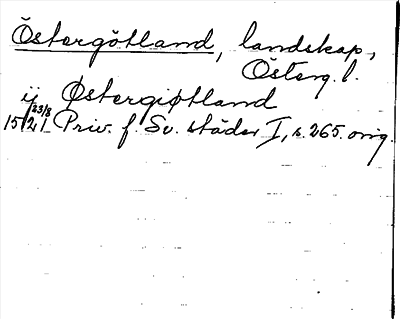 Östergötland, landskap,
Österg. l.
ij Østergiøtland
23/8
1521 Priv. f. Sv. städer I, s. 265. orig.